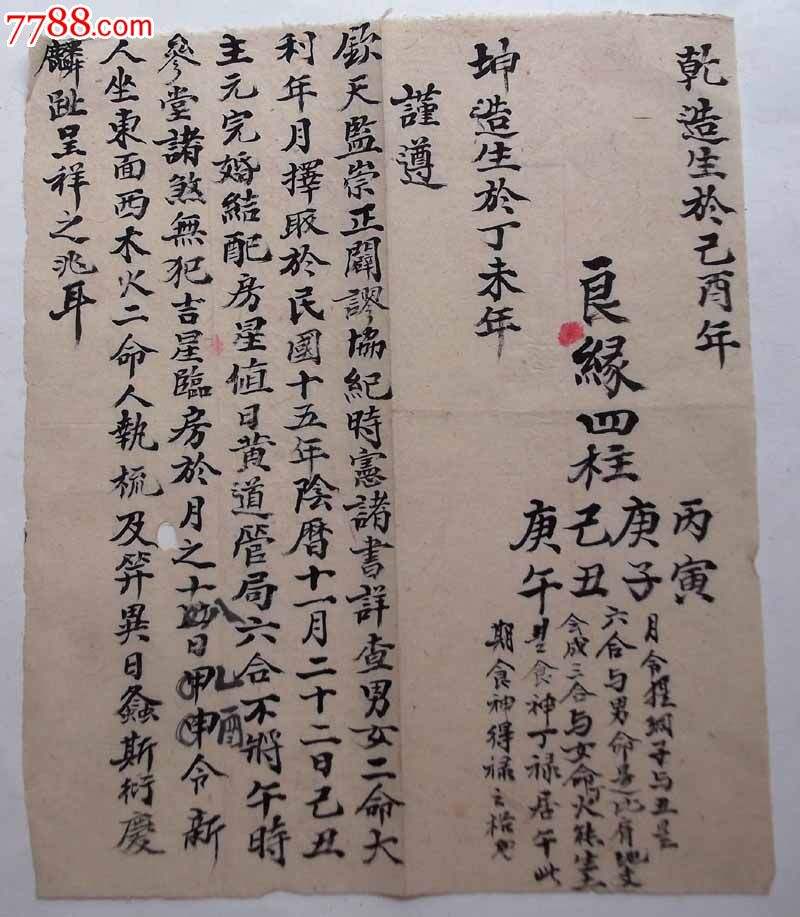 7788.com
乾造生於己酉年
良緣四柱
丙寅
庚子
己丑
庚午
月令提綱子与丑是
六合与男命
会成三合与女命火能生土
食神丁禄居午此
期食神得禄之格也
坤造生於丁未年
謹遵
欽天監崇正闢謬協紀時憲諸書詳查男女二命大
利年月擇取於民國十五年陰曆十一月二十二日己丑
主元完婚結配房星值日黄道管局六合不將午時
參堂諸煞無犯吉星臨房於月之十八日乙酉令新
人坐東面西木火二命人執梳及笄異日螽斯衍慶
麟趾呈祥之兆耳